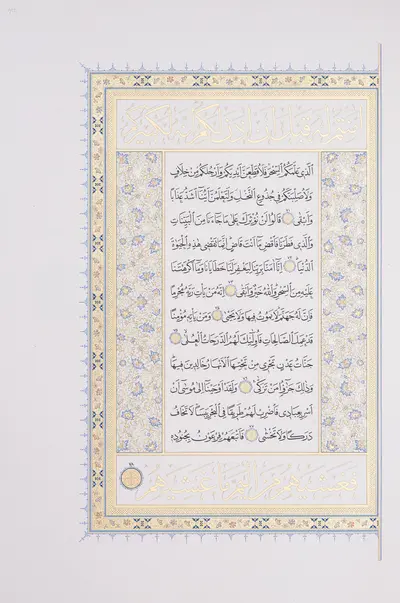 ءَامَنتُمْ لَهُ قَبْلَ أَنْ ءَاذَنَ لَكُمْ إِنَّهُ لَكَبِيرُكُمُ
الَّذِي عَلَّمَكُمُ السِّحْرَ فَلَأُقَطِّعَنَّ أَيْدِيَكُمْ وَأَرْجُلَكُمْ مِنْ خِلَافٍ
وَلَأُصَلِّبَنَّكُمْ فِي جُذُوعِ النَّخْلِ وَلَتَعْلَمُنَّ أَيُّنَا أَشَدُّ عَذَابًا
وَأَبْقَى قَالُوا لَنْ نُؤْثِرَكَ عَلَى مَا جَاءَنَا مِنَ الْبَيِّنَاتِ
وَالَّذِي فَطَرَنَا فَاقْضِ مَا أَنْتَ قَاضٍ إِنَّمَا تَقْضِي هَذِهِ الْحَيَوةَ
الدُّنْيَا إِنَّا آمَنَّا بِرَبِّنَا لِيَغْفِرَ لَنَا خَطَايَانَا وَمَا أَكْرَهْتَنَا
عَلَيْهِ مِنَ السِّحْرِ وَاللَّهُ خَيْرٌ وَأَبْقَى إِنَّهُ مَنْ يَأْتِ رَبَّهُ مُجْرِمًا
فَإِنَّ لَهُ جَهَنَّمَ لَا يَمُوتُ فِيهَا وَلَا يَحْيَى وَمَنْ يَأْتِهِ مُؤْمِنًا
قَدْ عَمِلَ الصَّالِحَاتِ فَأُولَئِكَ لَهُمُ الدَّرَجَاتُ الْعُلَى
جَنَّاتُ عَدْنٍ تَجْرِي مِنْ تَحْتِهَا الْأَنْهَارُ خَالِدِينَ فِيهَا
وَذَلِكَ جَزَاءُ مَنْ تَزَكَّى وَلَقَدْ أَوْحَيْنَا إِلَى مُوسَى أَنْ
أَسْرِ بِعِبَادِي فَاضْرِبْ لَهُمْ طَرِيقًا فِي الْبَحْرِ يَبَسًا لَا تَخَافُ
دَرَكًا وَلَا تَخْشَى فَأَتْبَعَهُمْ فِرْعَوْنُ بِجُنُودِهِ
فَغَشِيَهُمْ مِنَ الْيَمِّ مَا غَشِيَهُمْ